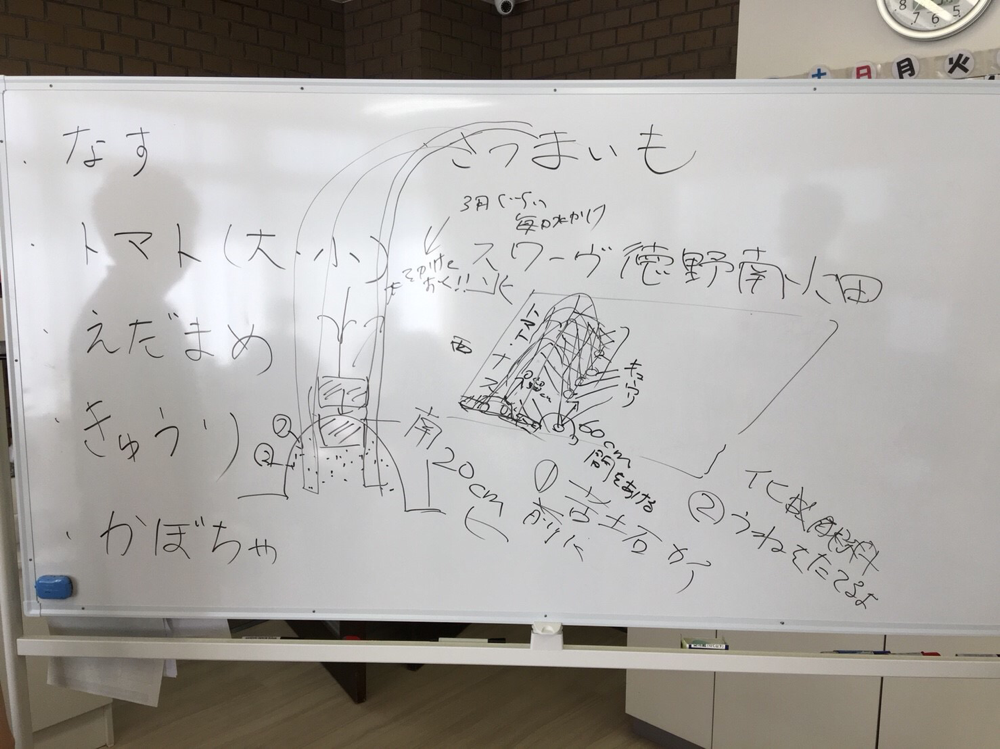 8 7 6 5
土 日 月 火
・なす
さつまいも
3月くらい
毎日水かけ
・トマト(大・小)
スワーヴ徳野南火田
・えだまめ
西
トマト
ナス
キュウリ
・きゅうり
①
②
南
20cm
60cm
間をあける
① 苦土石かい
化成肥料
② うねをたてるよ
・かぼちゃ